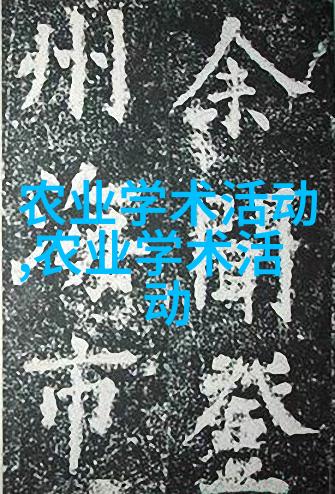 农业学术活动
,农业学术活
动
余聞登
州海市